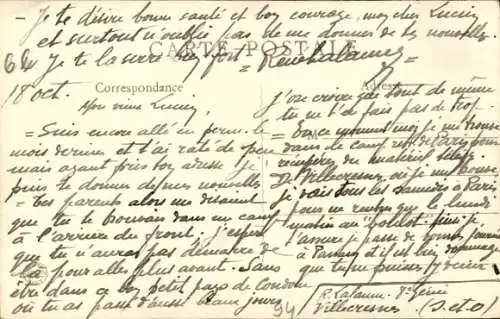 - Je te désire bonne santé et bon courage, mon cher Lucien
et surtout n'oublie pas de me donner de tes nouvelles.
Je te la serre bien fort = René Lalanne =
CARTE POSTALE
Correspondance
Adresse
18 oct.
Mon vieux Lucien,
= Suis encore allé en perm. le
mois dernier et t'ai raté de peu
mais ayant pris ton adresse je
puis te donner de mes nouvelles
= Tes parents alors me disaient
que tu te trouvais dans un camp
à l'arrière du front; j'espère
que tu n'auras pas démarré de
là pour aller plus avant. Sans
être dans ce petit pays de
où tu as passé d'aussi beaux jours
J'ose croire que tout de même
tu ne t'en fais pas de trop.
= En ce moment moi je me trouve
dans le camp ret. de Paris pour
récupérer du matériel
De Villecresnes où je me trouve
je vais tous les samedis à Paris
pour ne rentrer que le lundi
matin au "boulot" puis je
t'assure je passe de bonnes journées
à Panam et il est bien dommage
que tu ne puisses y venir
R. Lalanne 8e Génie
Villecresnes (S-et-O)
94